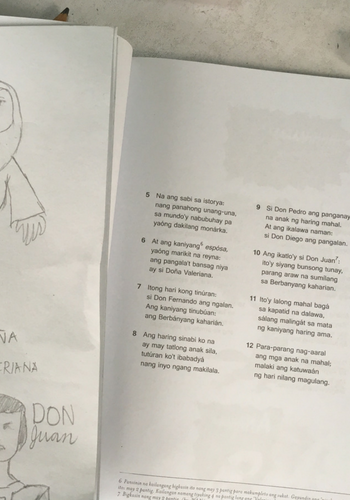 ÑA
ERIANA
DON
Juan
5 Na ang sabi sa istorya:
nang panahong unang-una,
sa mundo'y nabubuhay pa
yaong dakilang monarka.
6 At ang kaniyang⁶ espósa,
yaóng marikit na reyna:
ang pangala't bansag niya
ay si Doña Valeriana.
7 Itong hari kong tinúran:
si Don Fernando ang ngalan.
Ang kaniyang tinubúan:
ang Berbányang kaharián.
8 Ang haring sinabi ko na
ay may tatlong anak sila,
tutúran ko't ibabadyá
nang inyo ngang makilala.
9 Si Don Pedro ang panganay
na anak ng haring mahal.
At ang ikalawa naman:
si Don Diego ang pangalan.
10 Ang ikatlo'y si Don Juan⁷:
ito'y siyang bunsong tunay,
parang araw na sumilang
sa Berbanyang kaharian.
11 Ito'y lalong mahal bagá
sa kapatid na dalawa,
sálang malingát sa mata
ng kaniyang haring ama.
12 Para-parang nag-aaral
ang mga anak na mahal;
malaki ang katuwaán
ng hari nilang magulang.